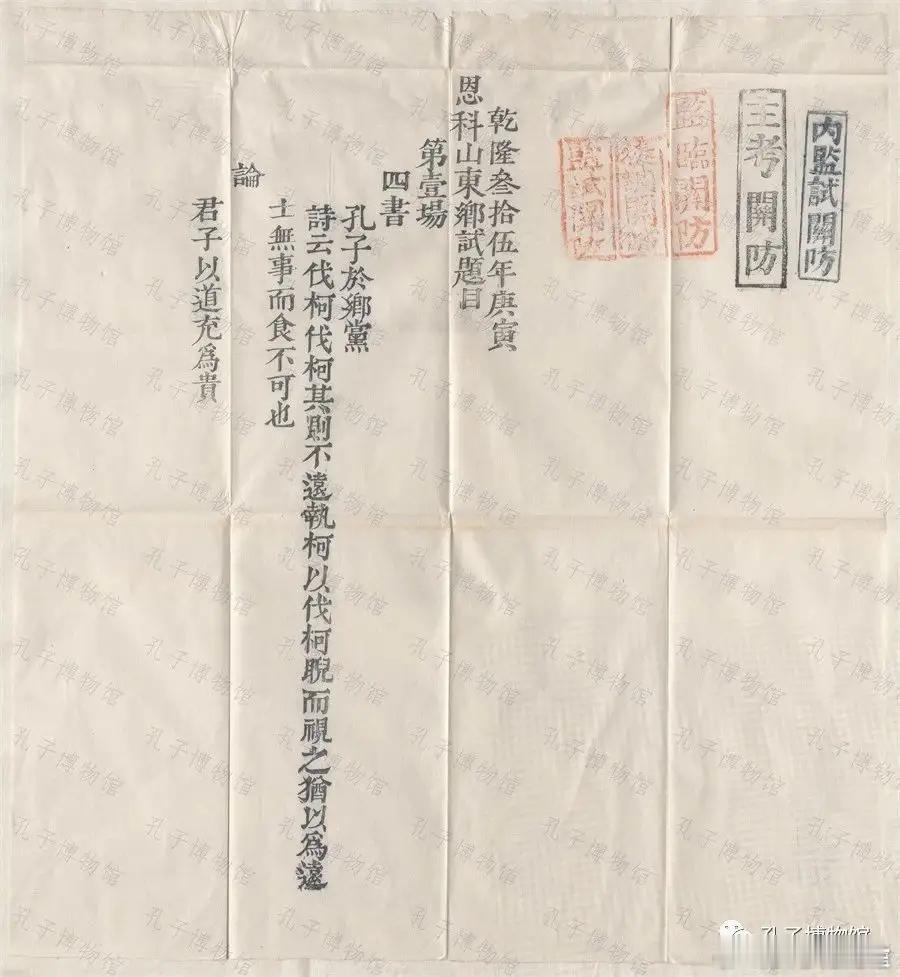 内監試關防
主考關防
監臨關防
監試關防
乾隆叁拾伍年庚寅
恩科山東鄉試題目
第壹場
四書
孔子於鄉黨
詩云伐柯伐柯其則不遠執柯以伐柯睨而視之猶以為遠
士無事而食不可也
論
君子以道充為貴
孔子博物馆